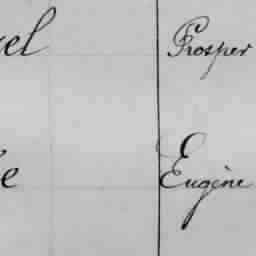 el Prosper
e Eugène